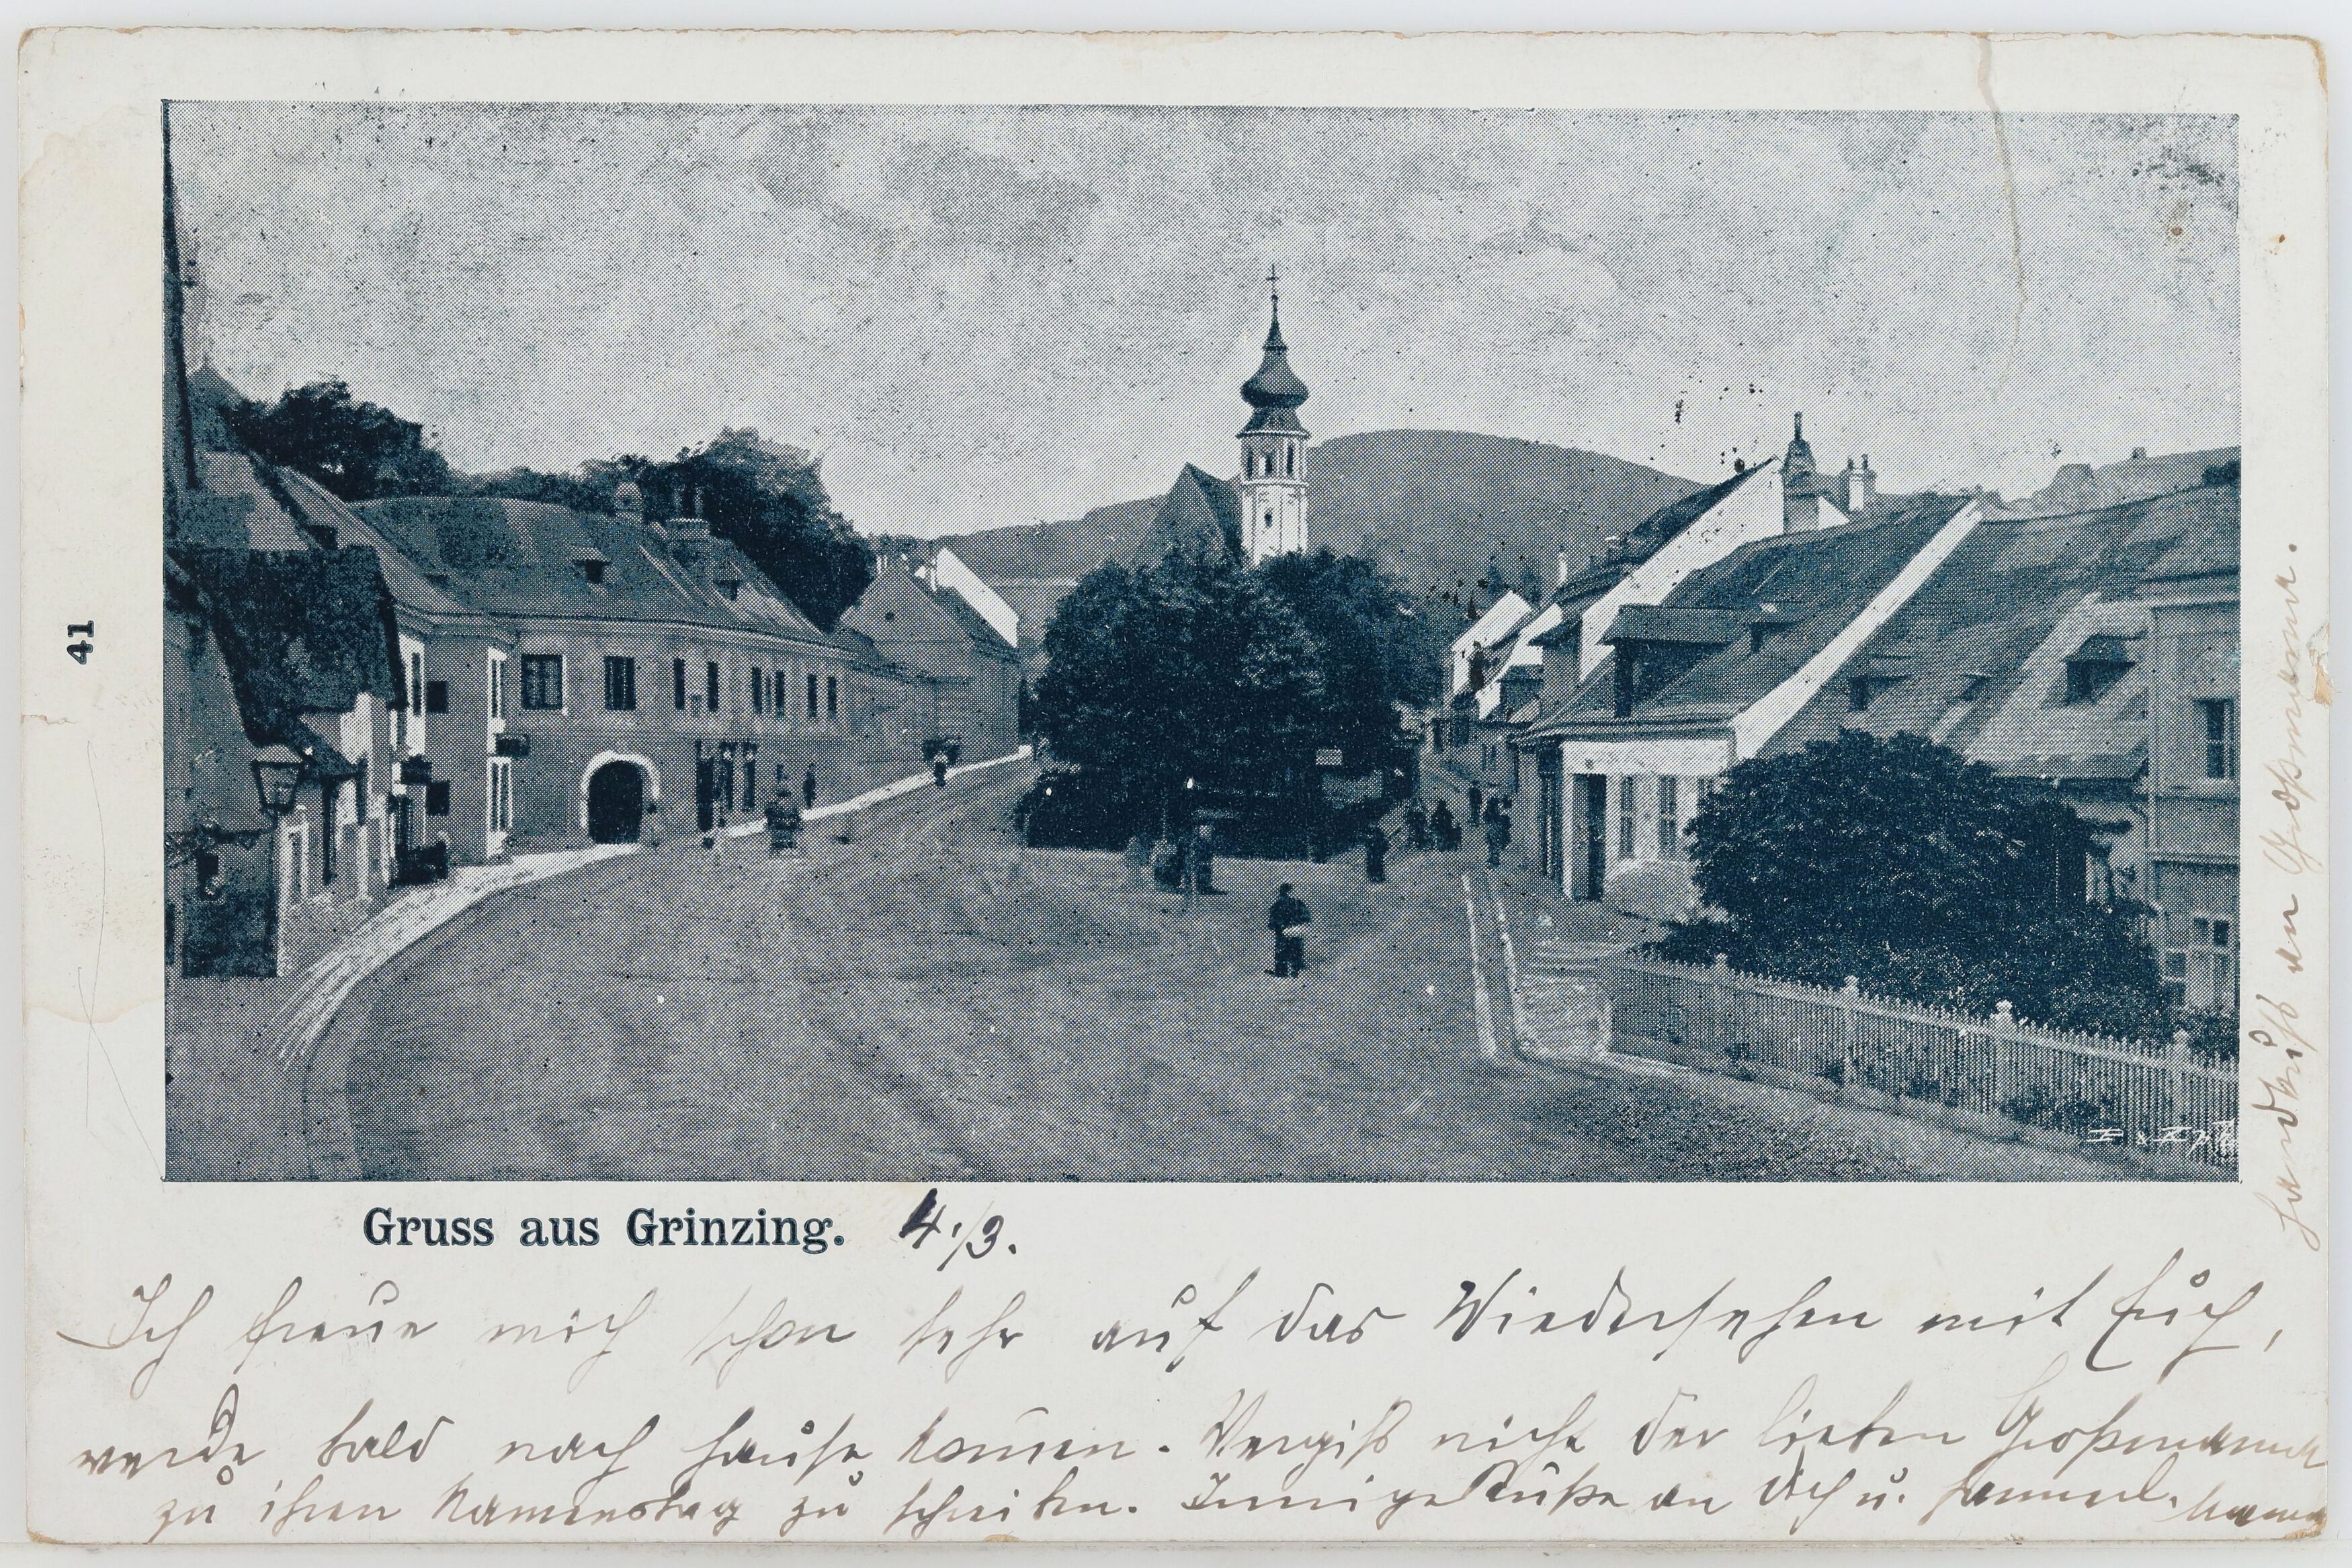 41
Gruss aus Grinzing. 4./3.
Ich freue mich schon sehr auf das Wiedersehen mit Euch,
werde bald nach Hause kom̄en. Vergiß nicht der lieben Großmama
zu ihren Namenstag zu schreiben. Innige Küße an Dich u. Mama
Handkuß an Großmama.